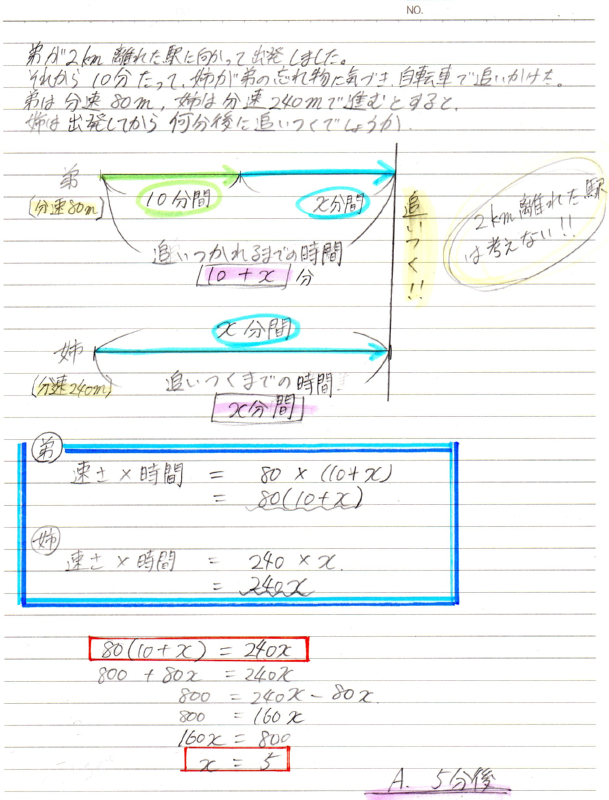 NO.
弟が2km離れた駅に向かって出発しました。
それから10分たって、姉が弟の忘れ物に気づき、自転車で追いかけた。
弟は分速80m、姉は分速240mで進むとすると、
姉は出発してから何分後に追いつくでしょうか.
弟
(分速80m)
10分間
x分間
追いつかれるまでの時間
10+x 分
追いつく!!
2km離れた駅
は考えない!!
x分間
姉
(分速240m)
追いつくまでの時間
x分間
弟
速さ×時間 = 80×(10+x)
= 80(10+x)
姉
速さ×時間 = 240×x.
= 240x
80(10+x) = 240x
800+80x = 240x
800 = 240x-80x.
800 = 160x
160x = 800
x = 5
A. 5分後